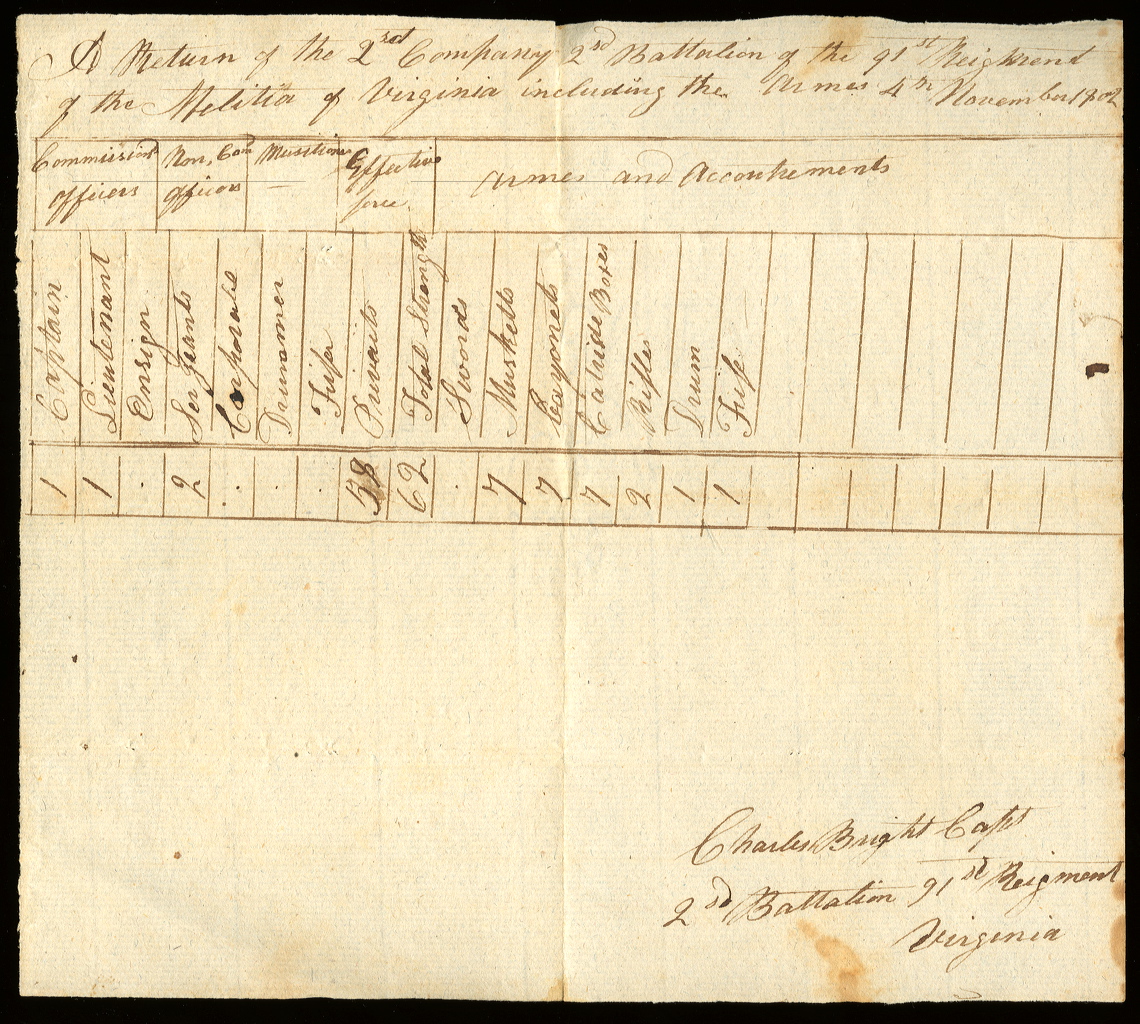 A Return of the 2nd Company 2nd Battalion of the 91st Reigment
of the Melitia of Virginia including the Armes 4th November 1802
Commission Non, Com Effective Armes and Accoutrements
officers officers force
Captain Lieutenant Ensign Sergeants Corporals Drummer Fifer Privaits Total Strength Swords Musketts Bayonets Catride Boxes Rifles Drum Fife
1 1 . 2 . . . 58 62 . 7 7 7 2 1 1
Charles Bright Capt
2nd Battalion 91st Reigment
Virginia